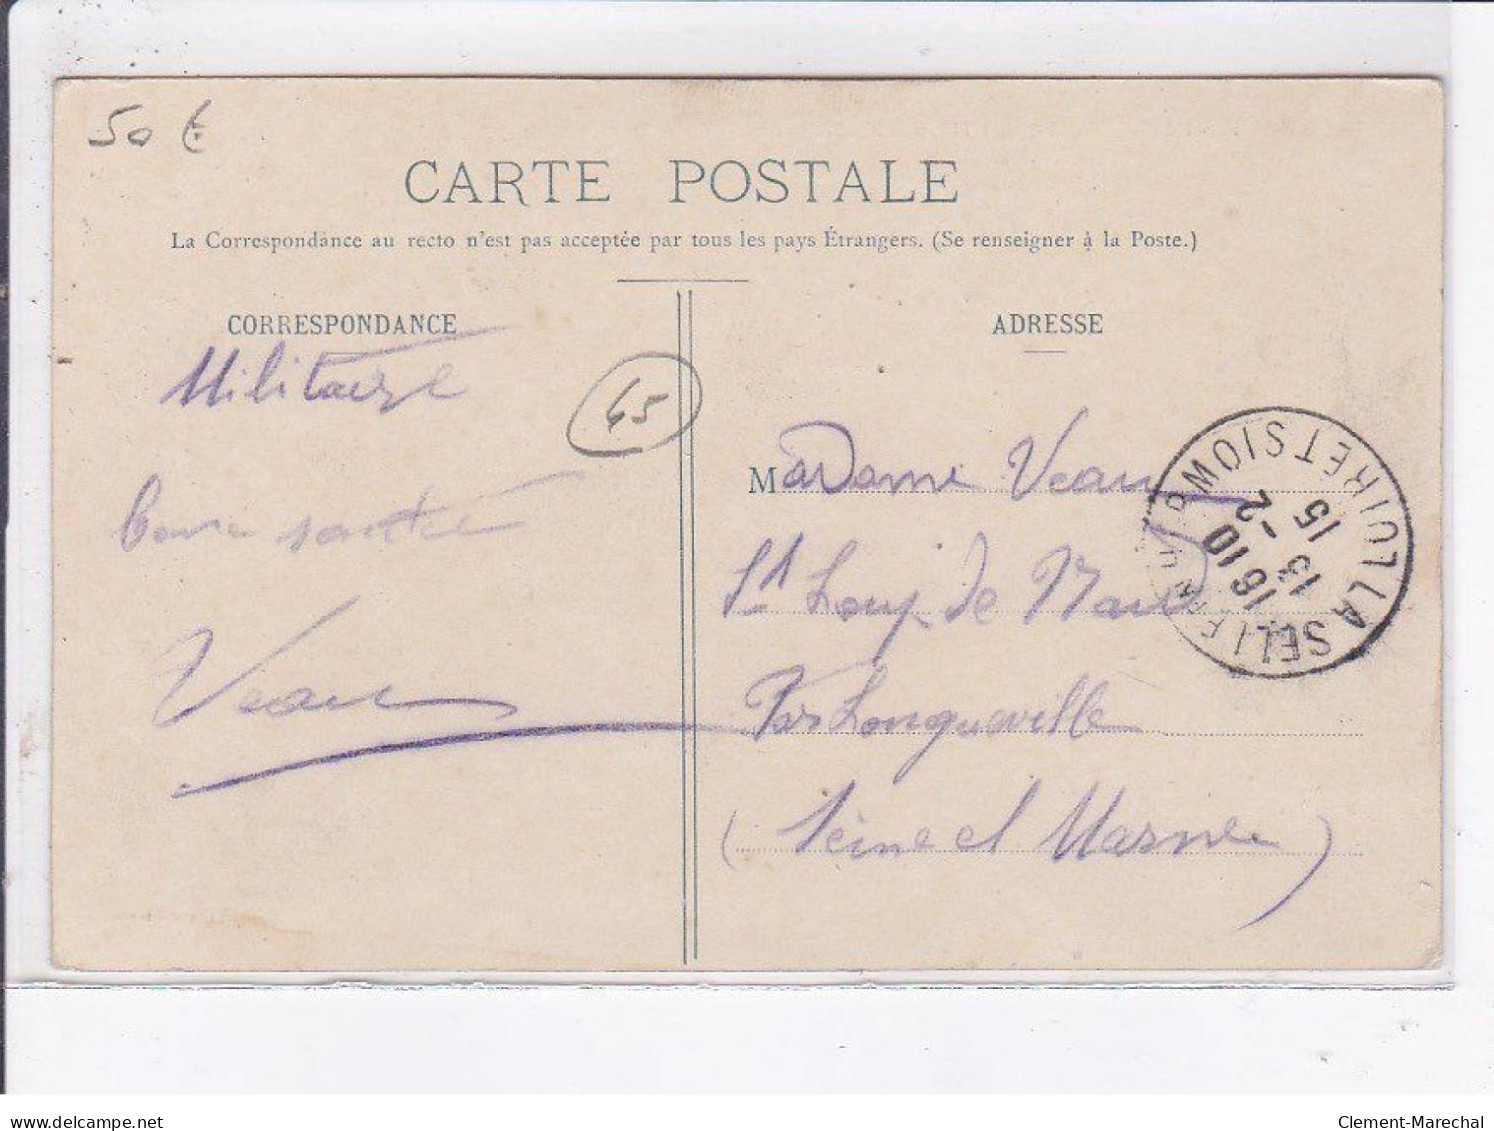 50 €
CARTE POSTALE
La Correspondance au recto n'est pas acceptée par tous les pays Étrangers. (Se renseigner à la Poste.)
CORRESPONDANCE
Militaire
45
bonne santé
Veau
ADRESSE
Madame Veau
St Loup de Naud
Par Longueville
(Seine et Marne)
LA SELLE
LOIRET
16 10
13 - 2
15
delcampe.net
Clement-Marechal